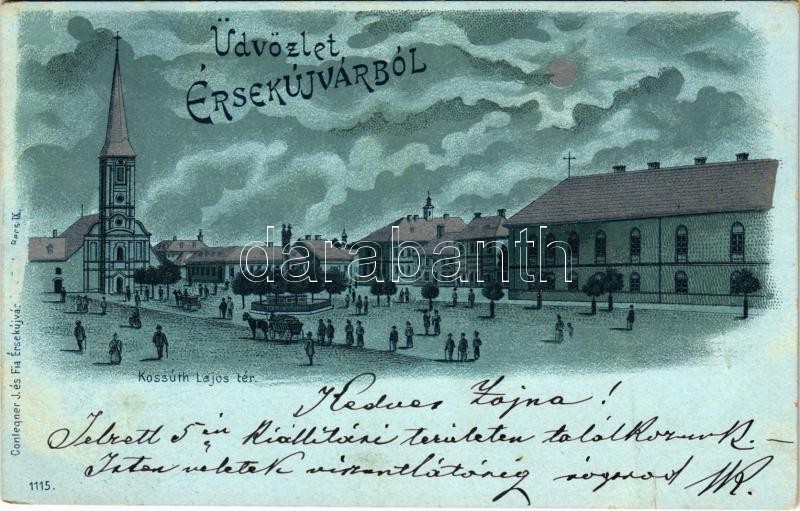 Üdvözlet
ÉRSEKÚJVÁRBÓL
darabanth
Conlegner J. és Fia Érsekújvár
Kossúth Lajos tér.
Kedves Zojna!
Jelzett 5 én kiállítási területen találkozunk. –
Isten veletek viszontlátásig
1115.